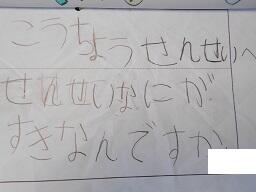 こうちょうせんせいへ
せんせいなにが
すきなんですか